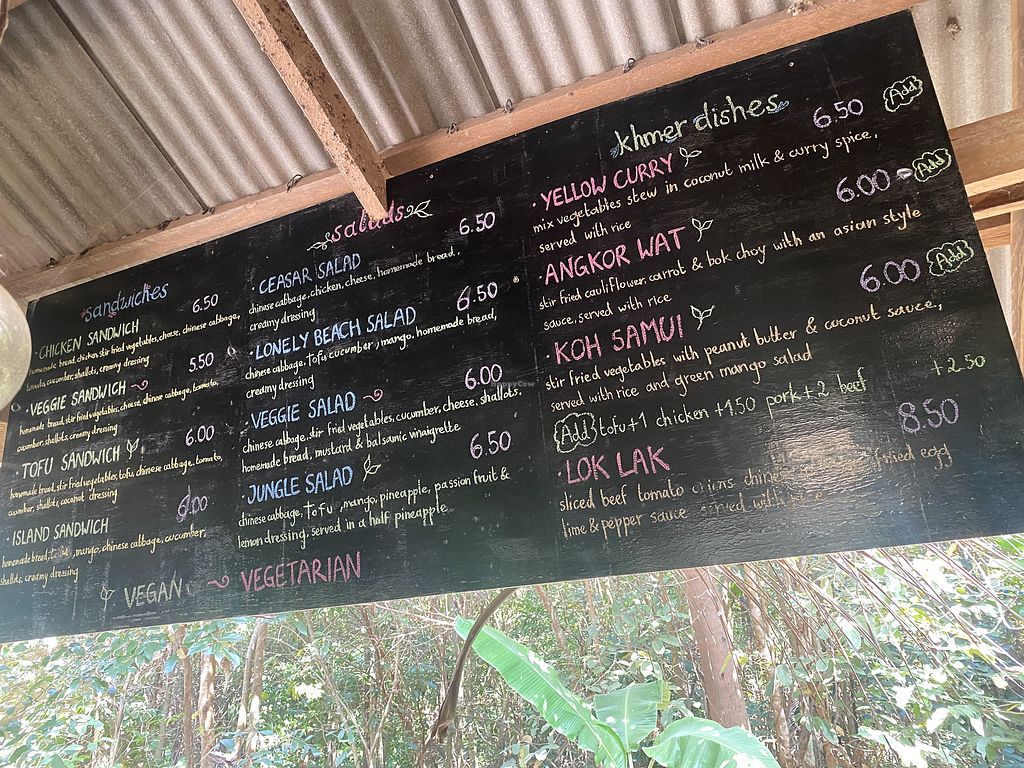 sandwiches
· CHICKEN SANDWICH 6.50
homemade bread, chicken, stir fried vegetables, cheese, chinese cabbage,
tomato, cucumber, shallots, creamy dressing
· VEGGIE SANDWICH 5.50
homemade bread, stir fried vegetables, cheese, chinese cabbage, tomato,
cucumber, shallots, creamy dressing
· TOFU SANDWICH 6.00
homemade bread, stir fried vegetables, tofu, chinese cabbage, tomato,
cucumber, shallots, coconut dressing
· ISLAND SANDWICH 6.00
homemade bread, mango, chinese cabbage, cucumber,
shallots, creamy dressing
salads
· CEASAR SALAD 6.50
chinese cabbage, chicken, cheese, homemade bread,
creamy dressing
· LONELY BEACH SALAD 6.50
chinese cabbage, tofu, cucumber, mango, homemade bread,
creamy dressing
· VEGGIE SALAD 6.00
chinese cabbage, stir fried vegetables, cucumber, cheese, shallots,
homemade bread, mustard & balsamic vinaigrette
· JUNGLE SALAD 6.50
chinese cabbage, Tofu, mango, pineapple, passion fruit &
lemon dressing, served in a half pineapple
VEGAN VEGETARIAN
khmer dishes
· YELLOW CURRY 6.50 Add
mix vegetables stew in coconut milk & curry spice,
served with rice
· ANGKOR WAT 6.00 Add
stir fried cauliflower, carrot & bok choy with an asian style
sauce, served with rice
· KOH SAMUI 6.00 Add
stir fried vegetables with peanut butter & coconut sauce,
served with rice and green mango salad
Add tofu +1 chicken +1.50 pork +2 beef +2.50
· LOK LAK 8.50
sliced beef tomato fried egg
lime & pepper sauce served with